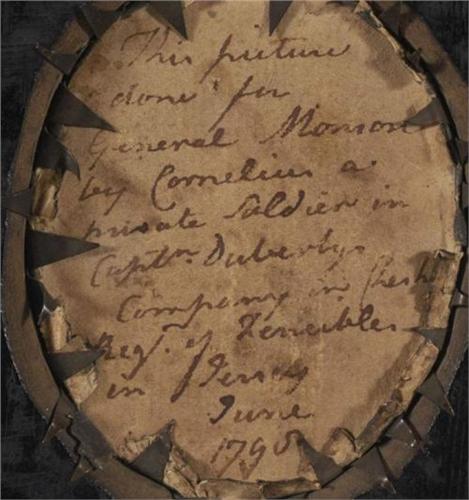 This picture
done for
General Monson
by Cornelius a
private Soldier in
Captn. Duberlys
Company in Chesh
Regt. of Fencibles
in Jersey
June
179